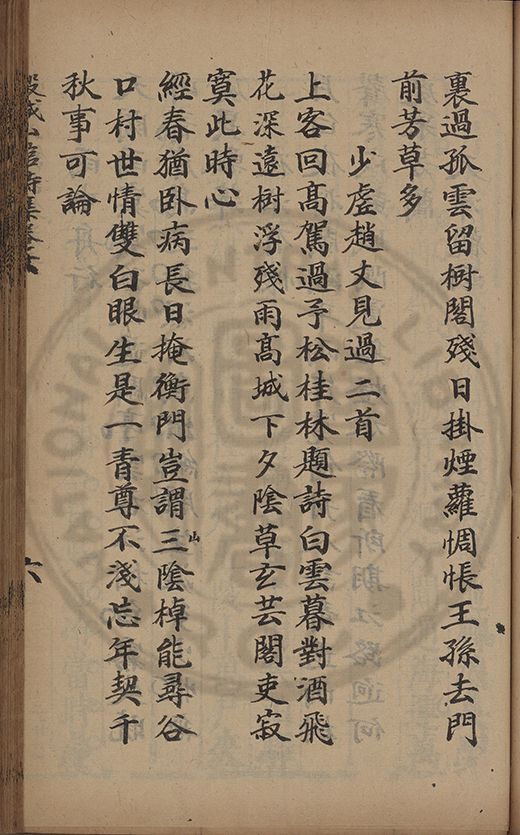 裏過孤雲留樹閣殘日掛煙蘿惆悵王孫去門
前芳草多
少虗趙丈見過二首
上客回高駕過予松桂林題詩白雲暮對酒飛
花深遠樹浮殘雨高城下夕陰草玄芸閣吏寂
寞此時心
經春猶卧病長日掩衡門豈謂三陰棹能尋谷
山
口村世情雙白眼生是一青尊不淺忘年契千
秋事可論
六